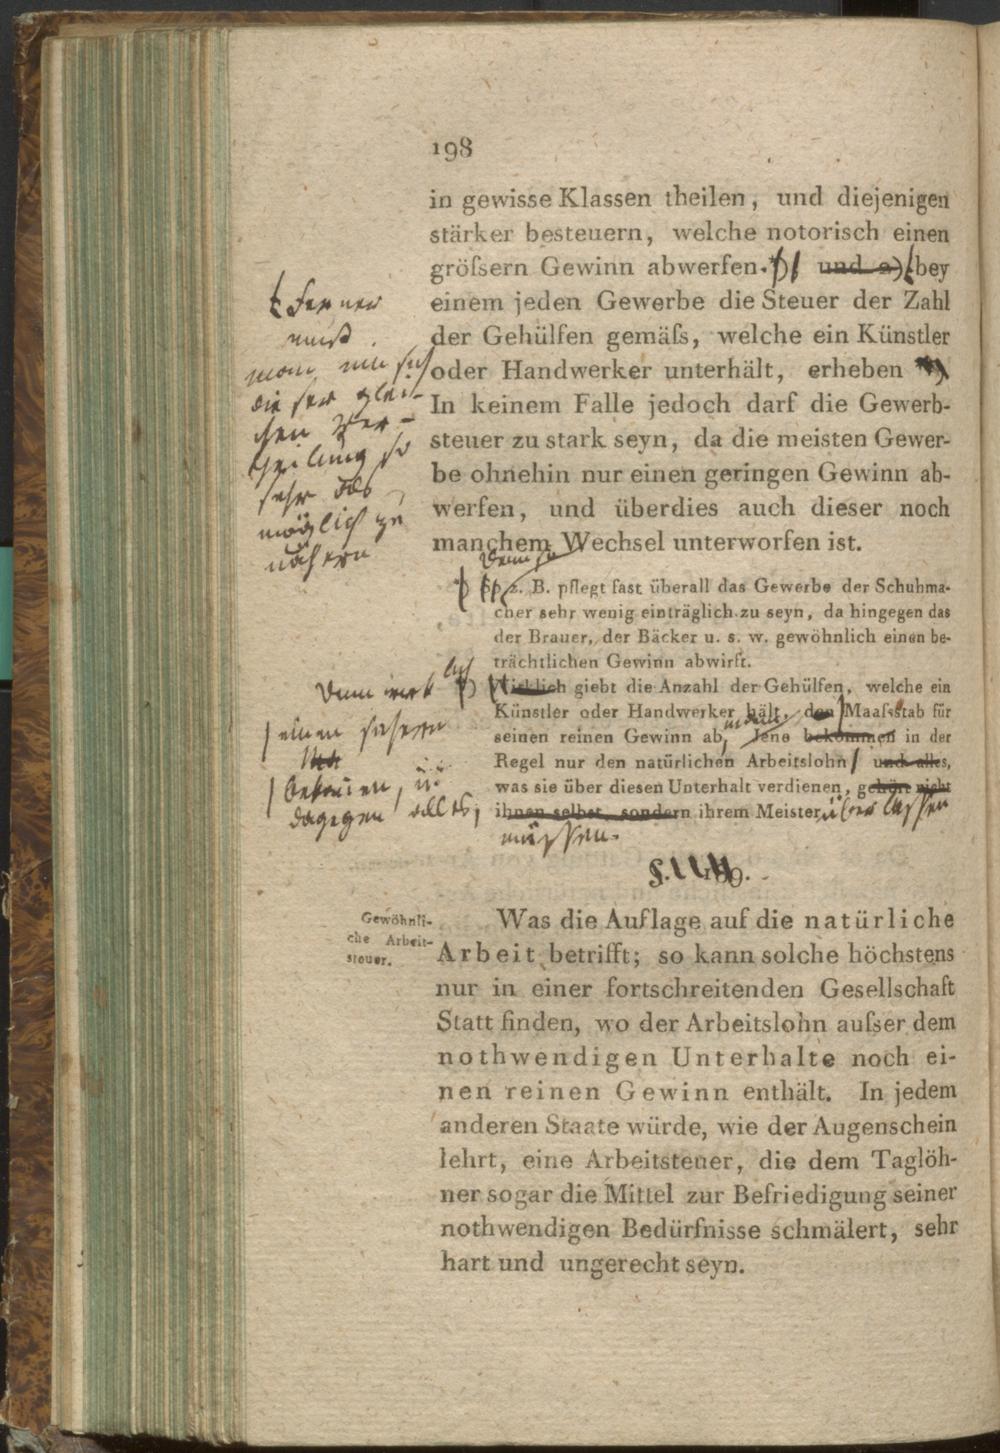 198
in gewisse Klassen theilen, und diejenigen
stärker besteuern, welche notorisch einen
gröſsern Gewinn abwerfen.*) und 2) bey
einem jeden Gewerbe die Steuer der Zahl
der Gehülfen gemäſs, welche ein Künstler
oder Handwerker unterhält, erheben
In keinem Falle jedoch darf die Gewerb-
steuer zu stark seyn, da die meisten Gewer-
be ohnehin nur einen geringen Gewinn ab-
werfen, und überdies auch dieser noch
manchem Wechsel unterworfen ist.
Ferner
muß
man um sich
dieser glei-
chen Ver-
theilung so
sehr als
möglich zu
nähern
Denn so
*) z. B. pflegt fast überall das Gewerbe der Schuhma-
cher sehr wenig einträglich zu seyn, da hingegen das
der Brauer, der Bäcker u. s. w. gewöhnlich einen be-
trächtlichen Gewinn abwirft.
Wirklich giebt die Anzahl der Gehülfen, welche ein
Künstler oder Handwerker hält, den Maaſsstab für
seinen reinen Gewinn ab, indem Jene bekommen in der
Regel nur den natürlichen Arbeitslohn und alles,
was sie über diesen Unterhalt verdienen, gehört nicht
ihnen selbst, sondern ihrem Meister überlassen
müssen.
Denn
einen
bekommen, u.
dagegen alles,
§. 189.
Gewöhnli-
che Arbeit-
steuer.
Was die Auflage auf die natürliche
Arbeit betrifft; so kann solche höchstens
nur in einer fortschreitenden Gesellschaft
Statt finden, wo der Arbeitslohn auſser dem
nothwendigen Unterhalte noch ei-
nen reinen Gewinn enthält. In jedem
anderen Staate würde, wie der Augenschein
lehrt, eine Arbeitsteuer, die dem Taglöh-
ner sogar die Mittel zur Befriedigung seiner
nothwendigen Bedürfnisse schmälert, sehr
hart und ungerecht seyn.